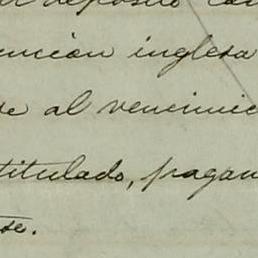 deposito con
ención inglesa
se al vencimie
titulado, pagan
se.